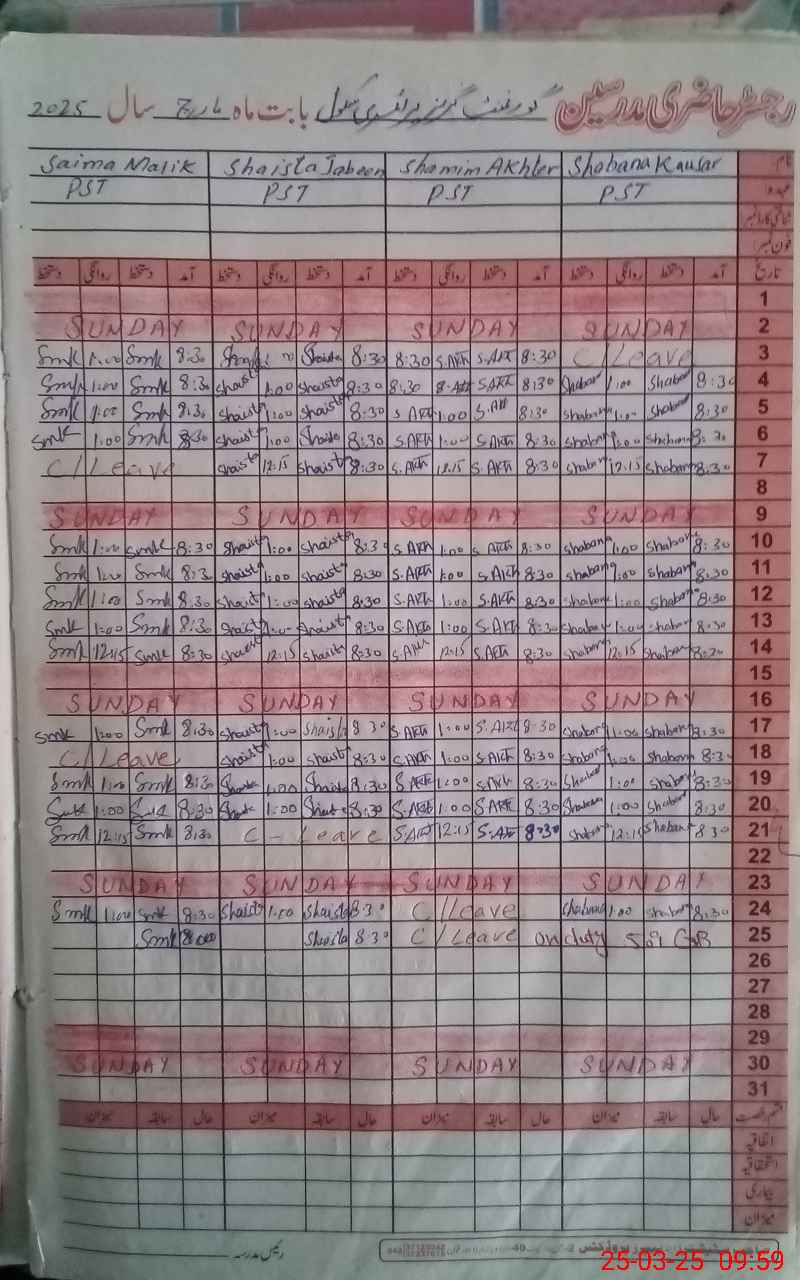 رجسٹر حاضری مدرسین گورنمنٹ گرلز پرائمری سکول بابت ماہ مارچ سال 2025
Saima Malik Shaista Jabeen Shamim Akhter Shabana Kausar نام
PST PST PST PST عہدہ
شناختی کارڈ نمبر
فون نمبر
دستخط روانگی دستخط آمد دستخط روانگی دستخط آمد دستخط روانگی دستخط آمد دستخط روانگی دستخط آمد تاریخ
1
SUNDAY SUNDAY SUNDAY SUNDAY 2
Smk 1:00 Smk 8:30 Shaista 8:30 8:30 S.AKh S.AKh 8:30 C/Leave 3
Smk 1:00 Smk 8:30 Shaista 1:00 Shaista 8:30 8:30 S.AKh S.AKh 8:30 Shaban 1:00 Shaban 8:30 4
Smk 1:00 Smk 8:30 Shaista 1:00 Shaista 8:30 S.AKh 1:00 S.AKh 8:30 Shabana 1:00 Shaban 8:30 5
Smk 1:00 Smk 8:30 Shaista 1:00 Shaista 8:30 S.AKh 1:00 S.AKh 8:30 Shaban 1:00 Shabana 8:30 6
C/Leave Shaista 12:15 Shaista 8:30 S.AKh 12:15 S.AKh 8:30 Shaban 12:15 Shabana 8:30 7
8
SUNDAY SUNDAY SUNDAY SUNDAY 9
Smk 1:00 Smk 8:30 Shaista 1:00 Shaista 8:30 S.AKh 1:00 S.AKh 8:30 Shaban 1:00 Shaban 8:30 10
Smk 1:00 Smk 8:30 Shaista 1:00 Shaista 8:30 S.AKh 1:00 S.AKh 8:30 Shaban 1:00 Shaban 8:30 11
Smk 1:00 Smk 8:30 Shaista 1:00 Shaista 8:30 S.AKh 1:00 S.AKh 8:30 Shabana 1:00 Shaban 8:30 12
Smk 1:00 Smk 8:30 Shaista 1:00 Shaista 8:30 S.AKh 1:00 S.AKh 8:30 Shaban 1:00 Shaban 8:30 13
Smk 12:15 Smk 8:30 Shaista 12:15 Shaista 8:30 S.AKh 12:15 S.AKh 8:30 Shaban 12:15 Shaban 8:30 14
15
SUNDAY SUNDAY SUNDAY SUNDAY 16
Smk 1:00 Smk 8:30 Shaista 1:00 Shaista 8:30 S.AKh 1:00 S.AKh 8:30 Shabana 1:00 Shaban 8:30 17
C/Leave Shaista 1:00 Shaista 8:30 S.AKh 1:00 S.AKh 8:30 Shaban 1:00 Shabana 8:30 18
Smk 1:00 Smk 8:30 Shaista 1:00 Shaista 8:30 S.AKh 1:00 S.AKh 8:30 Shaban 1:00 Shaban 8:30 19
Smk 1:00 Smk 8:30 Shaista 1:00 Shaista 8:30 S.AKh 1:00 S.AKh 8:30 Shabana 1:00 Shaban 8:30 20
Smk 12:15 Smk 8:30 C - Leave S.AKh 12:15 S.AKh 8:30 Shaban 12:15 Shabana 8:30 21
22
SUNDAY SUNDAY SUNDAY SUNDAY 23
Smk 1:00 Smk 8:30 Shaista 1:00 Shaista 8:30 C/Leave Shabana 1:00 Shaban 8:30 24
Smk 8:00 Shaista 8:30 C/Leave on duty 25
26
27
28
29
SUNDAY SUNDAY SUNDAY SUNDAY 30
31
میزان سابقہ حال میزان سابقہ حال میزان سابقہ حال میزان سابقہ حال قسم رخصت
اتفاقیہ
استحقاقیہ
بیماری
میزان
رئیس مدرسہ
25-03-25 09:59